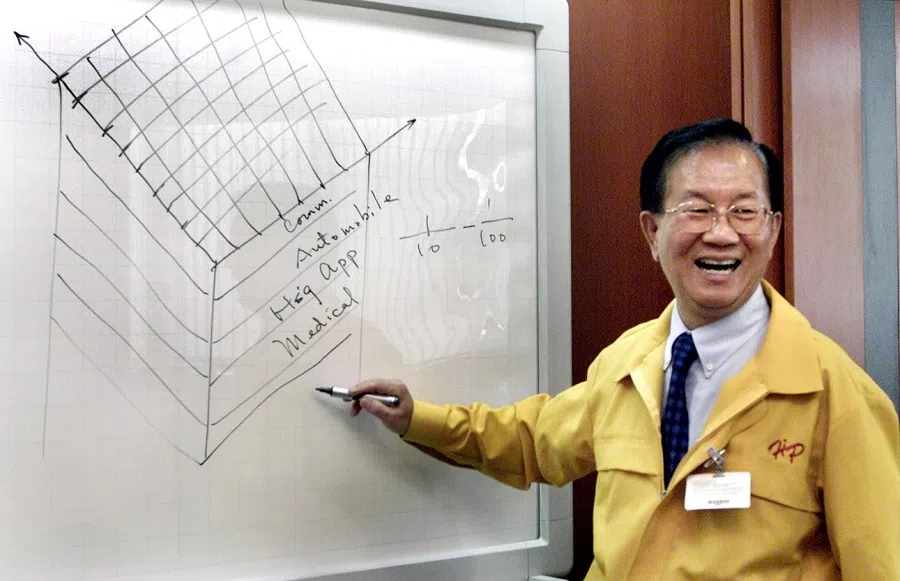 Comm.
Automobile
Hsg App
Medical
1/10 - 1/100
HP